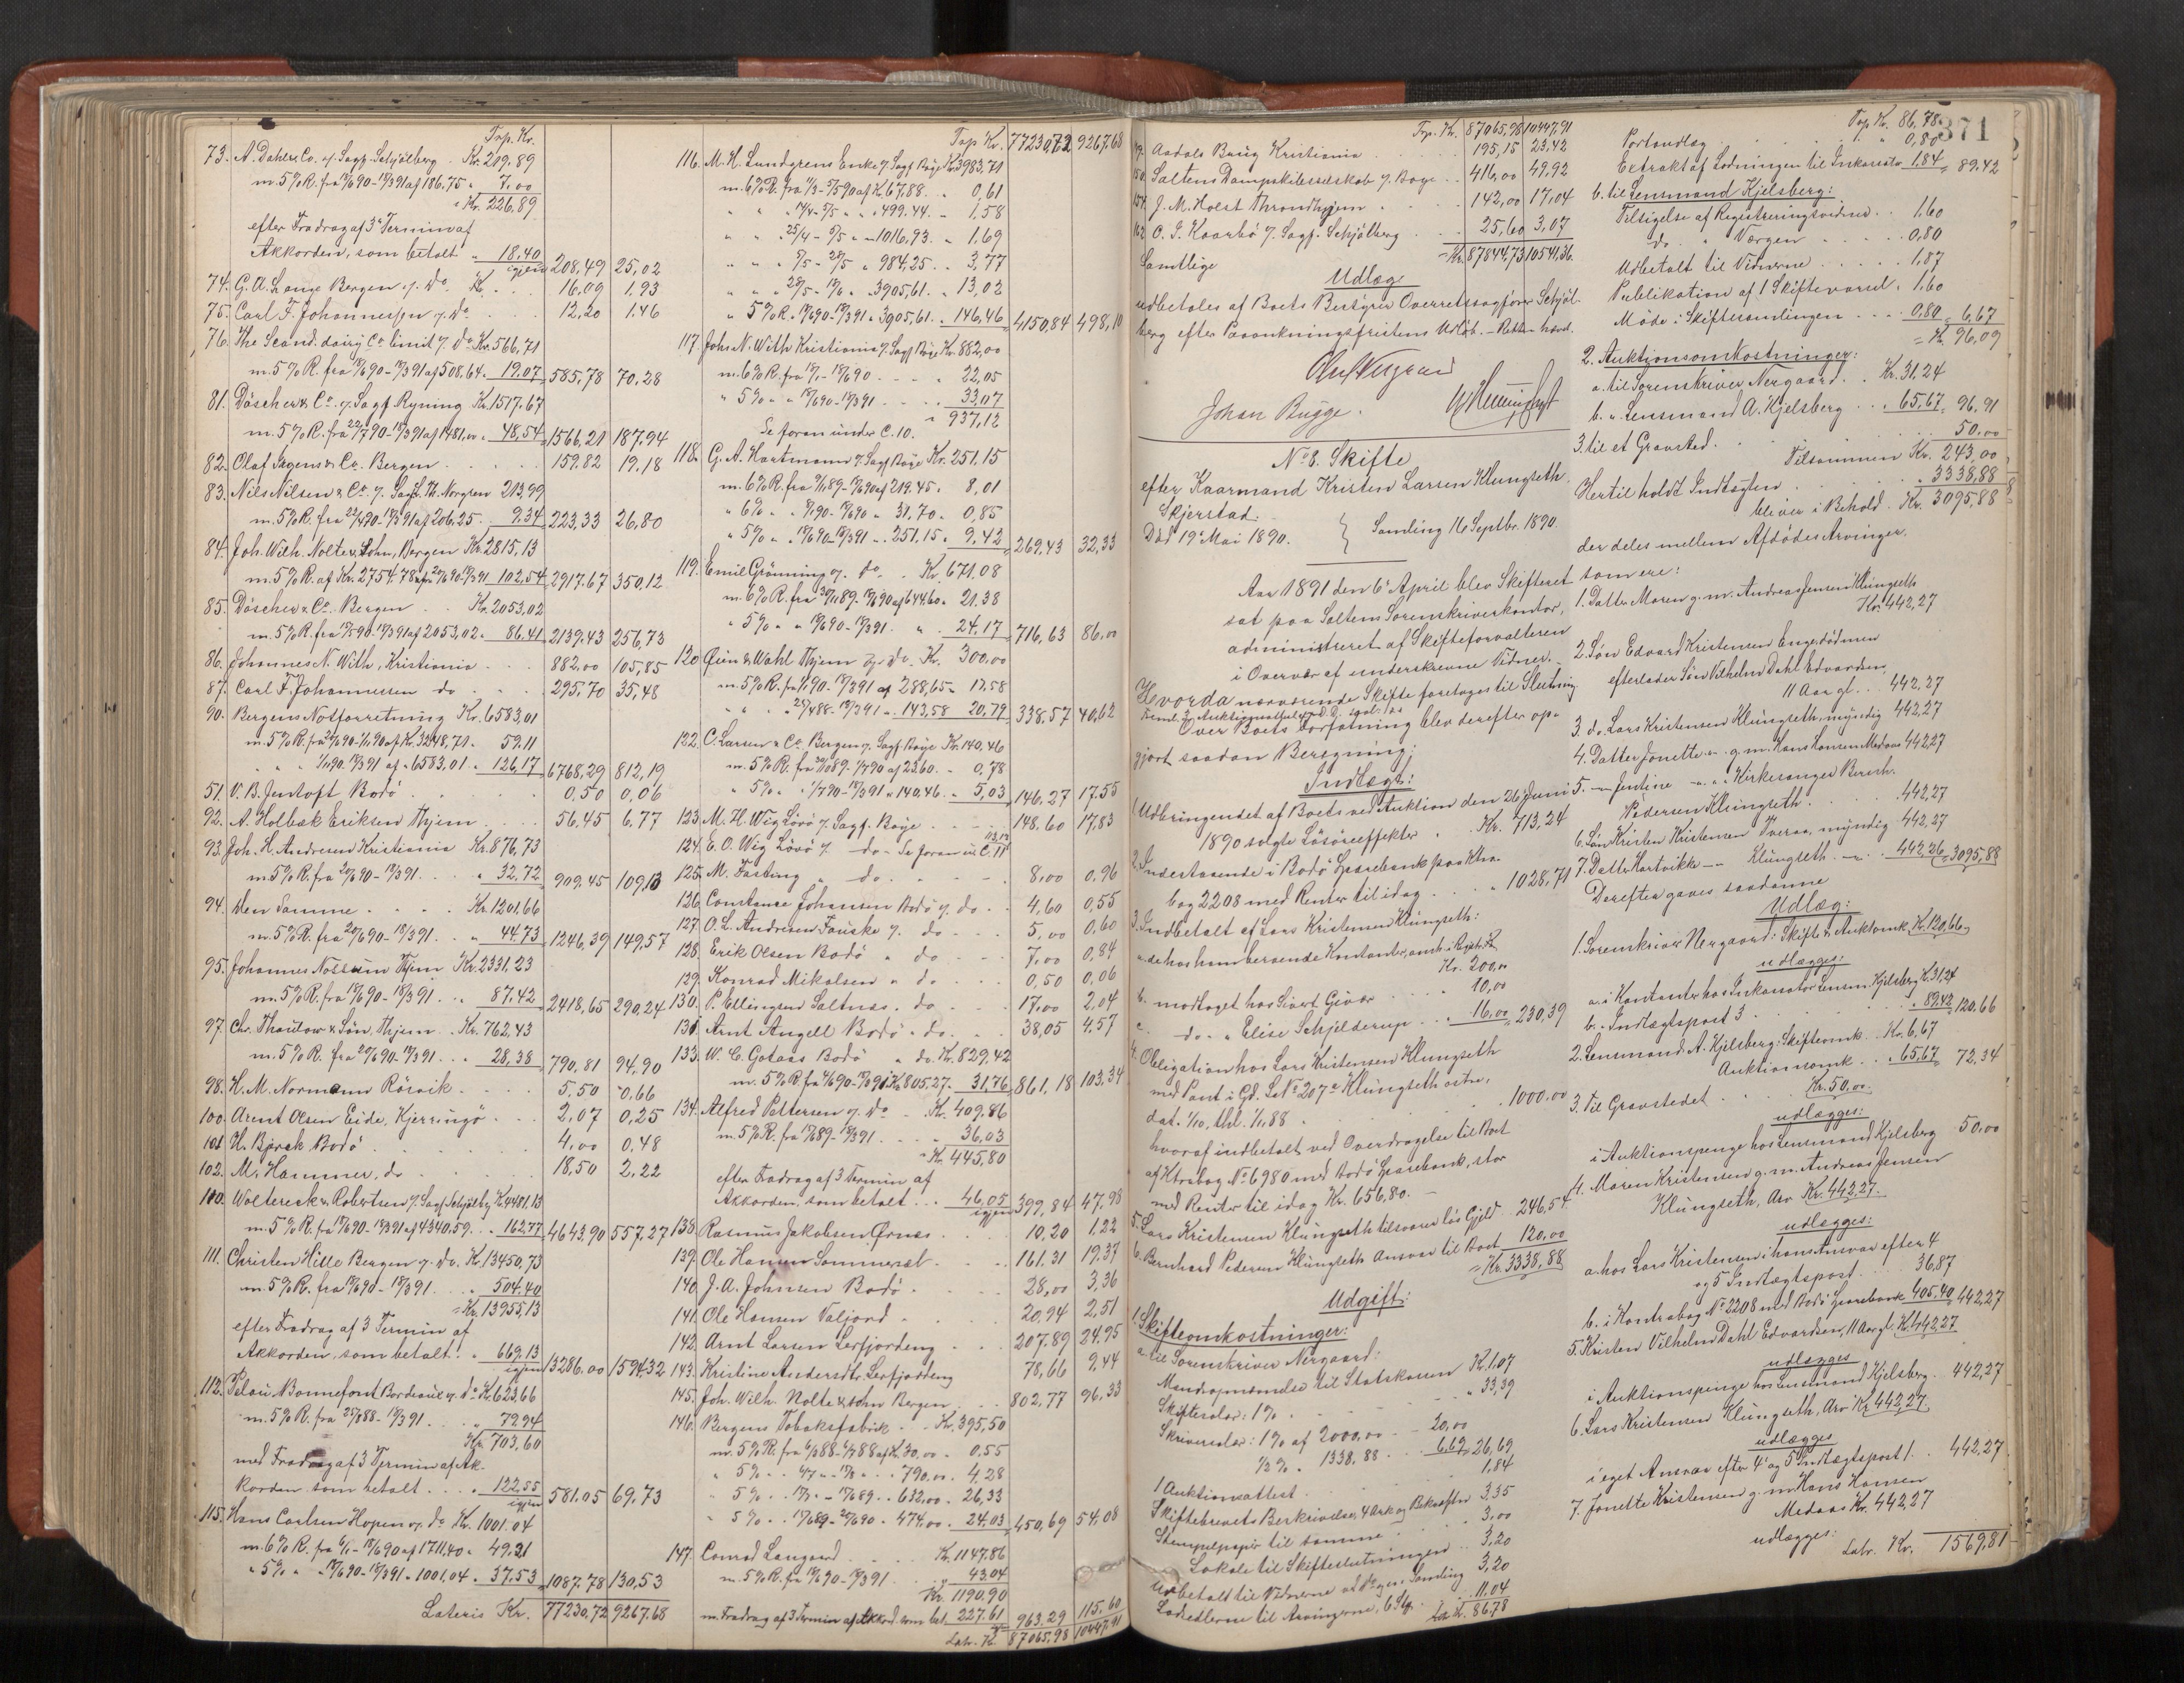 Trsp. Kr.
73. A. Dahl & Co. v. Sagf. Schjölberg . Kr. 219.89
m. 5% R. fra 18/6 90 - 18/3 91 af 186.75 " 7.00
" Kr. 226.89
efter Fradrag af 3' Termin af
Akkorden, som betalt " 18.40
igjen 208,49 25,02
74. G. A. Lange Bergen v. do. Kr. . . 16.09 1.93
75. Carl F. Johannessen v. do . . 12,20 1.46
76. The Scand. dairy Co. limit v. do Kr. 566,71
m. 5% R. fra 18/6 90 - 18/3 91 af 508,64 . 19.07 585,78 70,28
81. Döscher & Co. v. Sagf. Ryning Kr. 1517.67
m. 5% R. fra 22/7 90 - 18/3 91 af 1481,00 " 48,54 1566,21 187.94
82. Olaf Irgens & Co. Bergen . . . . 159.82 19.18
83. Niels Nilsen & Co. v. Sagf. Th. Norgren 213,99
m. 5% R. fra 22/4 90 - 18/3 91 af 206.25 . 9.34 223,33 26,80
84. Joh. Wilh. Nolte & Sohn, Bergen Kr. 2815,13
m. 5% R. af Kr. 2754.78 fra 20/6 90 - 18/3 91 102,54 2917.67 350,12
85. Döscher & Co. Bergen . . Kr. 2053,02
m. 5% R. fra 15/5 90 - 18/3 91 af 2053,02 . 86.41 2139.43 256,73
86. Johannes N. With, Kristiania . . . 882.00 105,85
87. Carl F. Johannessen do . . . 295,70 35,48
90. Bergens Notforretning Kr. 6583,01
m. 5% R. fra 24/6 90 - 1/11 90 af Kr. 3248,71 . 59.11
" " 1/11 90 - 18/3 91 af " 6583,01 . 126,17 6768,29 812,19
51. V. B. Jentoft Bodö . . . 0,50 0,06
92. A. Holbæk Eriksen Thjem . . . 56,45 6.77
93. Joh. H. Andresen Kristiania Kr. 876,73
m. 5% R. fra 20/6 90 - 18/3 91 . . " 32.72 909.45 109,13
94. Den Samme . . . . Kr. 1201.66
m. 5% R. fra 20/6 90 - 18/3 91 . . " 44.73 1246,39 149,57
95. Johannes Nossum Thjem Kr. 2331,23
m. 5% R. fra 18/6 90 - 18/3 91 . . " 87.42 2418,65 290,24
97. Chr. Thaulow & Søn, Thjem . . Kr. 762,43
m. 5% R. fra 20/6 90 - 18/3 91 . . . 28,38 790,81 94.90
98. H. M. Normann Rösvik . . . . 5.50 0.66
100. Arent Olsen Eide, Kjerringö . . . 2,07 0,25
101. H. Bjerck Bodö . . . . 4,00 0,48
102. M. Hammer, do . . . . 18,50 2,22
110. Woltereck & Robertson v. Sagf. Schjölberg Kr. 4481,13
m. 5% R. fra 18/6 90 - 18/3 91 af 4340.59 . . " 162.77 4643.90 557,27
111. Christen Hille Bergen v. do. Kr. 13450,73
m. 5% R. fra 18/6 90 - 18/3 91 . . " 504.40
= Kr. 13955,13
efter Fradrag af 3 Termin af
Akkorden, som betalt . . " 669,13
igjen 13286.00 1594,32
112. Pelou Bonnefont Bordeaux v. do Kr. 623,66
m. 5% R. fra 25/8 88 - 18/3 91 . . " 79.94
Kr. 703,60
med Fradrag af 3 Termin af Ak-
korden som betalt . . . " 122.55
igjen 581.05 69,73
115. Hans Carlsen Hopen v. do Kr. 1001.04
m. 6% R. fra 6/1 - 18/6 90 af 1711,40 . 49.21
" 5% " " 18/6 90 - 18/3 91 " 1001,04 . 37.53 1087.78 130,53
Lateris Kr. 77230,72 9267.68
Trsp. Kr. 77230,72 9267,68
116. M. H. Lundgrens Enke v. Sagf. Böye Kr. 3983,71
m. 6% R. fra 11/3 - 5/5 90 af Kr. 67.88 . . 0,61
" " " 14/4 - 5/5 " " 499.44 . - 1,58
" " 25/4 - 5/5 " " 1016,93 . " 1,69
" " " 5/5 - 28/5 " 984,25 . . 3,77
" " " 28/5 - 18/6 " 3905,61 . " 13,02
" 5% R. " 18/6 90 - 18/3 91 " 3905,61 . . 146,46 4150,84 498,10
117. Johs N. With Kristiania v. Sagf. Böye Kr. 882,00
m. 6% R. fra 18/1 - 18/6 90 . . . . " 22,05
" 5% " " 18/6 90 - 18/3 91 . . . " 33,07
" 937,12
Se foran under C. 10.
118. G. A. Hartmann v. Sagf. Böye Kr. 251,15
m. 6% R. fra 9/11 89 - 18/6 90 af 219.45 . 8,01
" 6% " " 9/1 90 - 18/6 90 " 31,70 . 0,85
" 5% " " 18/6 90 - 18/3 91 " . 251,15 " 9,42 269,43 32,33
119. Emil Grönning v. do . . Kr. 671.08
m. 6% R. fra 30/11 89 - 18/6 90 af 644.60 . 21.38
" 5% " " 18/6 90 - 18/3 91 . " . 24.17 716,63 86,00
120. Øien & Wahl Thjem v. do. Kr. 300,00
m. 5% R. fra 1/1 90 - 18/3 91 af 288,65 " 17.58
" " . " 28/4 88 - 18/3 91 " . 143,58 20,79 338.57 40,62
122. C. Larsen & Co. Bergen v. Sagf. Böye Kr. 140,46
m. 5% R. fra 30/10 89 - 1/7 90 af 23.60 . - 0,78
" 5% " " 1/7 90 - 18/3 91 " 140.46 . . 5,03 146,27 17.55
123. M. H. Wig Lövö v. Sagf. Böye . . . 148.60 17,83
124. E. O. Wig Lövö v. do - Se foran u. C. 11
125. M. Fasting " do . . . . 8,00 0,96
126. Constance Johansen Bodö v. do . . 4,60 0,55
127. O. L. Andresen Fauske v. do . . . 5,00 0,60
128. Erik Olsen Bodö " do . . . 7,00 0,84
129. Konrad Mikalsen " do . . . 0,50 0,06
130. P. Ellingsen Saltnes . do . . 17.00 2,04
131. Arnt Angell Bodö . do . . . 38,05 4,57
133. W. C. Gotaas Bodö " do. Kr. 829,42
m. 5% R. fra 4/6 90 - 18/3 91 af Kr. 805,27 . 31,76 861,18 103,34
134. Alfred Pettersen v. do . . Kr. 409,86
m. 5% R. fra 18/6 89 - 18/3 91 . . . . 36,03
= Kr. 445,80
efter Fradrag af 3 Termin af
Akkorden, som betalt . . . 46,05
igjen 399,84 47,98
138. Rasmus Jakobsen Ørnes . . . 10,20 1,22
139. Ole Hansen Sommerset . . . 161.31 19,37
140. J. A. Johnsen Bodö . . . . 28,00 3,36
141. Ole Hansen Valjord . . . . 20,94 2,51
142. Arnt Larsen Leifjordeng . . . 207.89 24.95
143. Kristine Andersdtr. Leifjordeng 78,66 9,44
145. Joh. Wilh. Nolte & Sohn Bergen . . . 802,77 96.33
146. Bergens Tobaksfabrik . . Kr. 395,50
m. 5% R. fra 6/2 88 - 4/7 88 af Kr. 30,00 . 0.55
" 5% . . 4/7 " - 17/8 " . . 790,00 . 4.28
" 5% . . 17/8 " - 18/6 89 . . 632,00 . 26,33
" 5% . . 18/6 89 - 20/6 90 . 474,00 . . 24,03 450,69 54,08
147. Conrad Langaard . . . Kr. 1147,86
m. 5% R. fra 18/6 90 - 18/3 91 . . . 43.04
Kr. 1190.90
m. Fradrag af 3 Termin af Akkord som bet. 227.61 963.29 115,60
Latr. Kr. 87065,98 10447.91
Trsp. Kr. 87065,98 10447,91
Aadals Brug Kristiania . . . . 195,15 23.42
150. Saltens Dampskibsselskab v. Böye . . 416,00 49,92
154. J. M. Holst Throndhjem . . . 142,00 17,04
162. O. J. Kaarbö v. Sagf. Schjölberg . . . 25,60 3,07
= Kr. 87844,73 10541,36
Samtlige
Udlæg
udbetales af Boets Bestyrer Overretssagfører Schjöl-
berg efter Paaankningsfristens Udløb. - Retten hævet.
Johan Bugge.
No 8. Skifte
efter Kaarmand Kristen Larsen Klungseth
Skjerstad:
Död 19' Mai 1890. } Samling 16 Septbr. 1890.
Aar 1891 den 6' April blev Skifteret
sat paa Saltens Sorenskriverkontor,
administreret af Skifteforvalteren
i Overvær af underskrevne Vidner. -
Hvorda nærværende Skifte foretoges til Slutning.
Over Boets Forfatning blev derefter op-
gjort saadan Beregning:
Indtægt:
1. Udbringendet af Boets ved Auktion den 26 Juni
1890 solgte Løsøreeffekter " Kr. 713,24
2. Indestaaende i Bodö Sparebank paa Kontra-
bog 2208 med Renter til idag . . . " 1028,71
3. Indbetalt af Lars Kristensen Klungseth:
a. de hos ham beroende Kontanter, anmeldt i Regist.
Kr. 200,00
b. modtaget hos Sivert Givær . . . 10,00
c. do - " Elise Schjelderup . . " 16,00 = 230,39
4. Obligation hos Lars Kristensen Klungseth
med Pant i Gd. L No 207 a Klungseth østre,
dat. 1/10, thl. 1/11 88 . . . . 1000.00
hvoraf indbetalt ved Overdragelse til Boet
af Ktrabog No 6980 med Bodö Sparebank, stor
med Renter til idag Kr. 656,80. -
5. Lars Kristensen Klungseth tilsvarer løs Gjeld . 246,54
6. Bernhard Pedersen Klungseth Ansvar til Boet 120,00
= Kr. 3338,88
Udgift:
1. Skifteomkostninger:
a. til Sorenskriver Nergaard:
Mandsopnævnelse til Statskassen Kr. 1.07
Skiftesalær: 1% . . . . " 33,39
Skriversalær: 1% af 2000,00 - - 20,00
1/2 % " 1338,88 - - 6,69 = 26,69
1 Auktionsattest . . . 1,84
Skiftebrevets Beskrivelse, 4 Ark og Bekræftn 3,35
Stempelpapir til samme . . . 3,00
Lokale til Skifteslutningen . . 3,20
Udbetalt til Vidnerne ad Slutn. Samling 3,20
Lodsedlerne til Arvingerne, 6 Stk. . . 11.04
La Kr. 86,78
371
Trsp. Kr. 86,78
Portoudlæg . . . . . " 0,80
Extrakt af Lodningen til Inkassator 1.84 = 89.42
b. til Lensmand Kjelsberg:
Tilsigelse af Registreringsvidner . . 1.60
do. " Værgen . . . . 0,80
Udbetalt til Vidnerne . . . . . 1,87
Publikation af 1 Skiftevarsel . 1.60
Möde i Skiftesamlingen . . . . 0,80 = 6,67
= Kr. 96,09
2. Auktionsomkostninger:
a. til Sorenskriver Nergaard . . Kr. 31,24
b. " Lensmand A. Kjelsberg . . . 65,67 = 96.91
3. til et Gravsted . . . . . 50.00
Tilsammen Kr. 243,00
Hertil holdt Indtægten . . . . " 3338,88
bliver i Behold . Kr. 3095,88
der deles mellem Afdødes Arvinger,
som ere:
1. Datter Maren g. m. Andreas Jensen Klungseth
Kr. 442,27
2. Søn Edvard Kristensen Enge, død men
efterlader Søn Vilhelm Dahl Edvardsen,
11 Aar gl. . . 442,27
3. do. Lars Kristensen Klungseth, myndig 442,27
4. Datter Jonette " - g. m. Hans Hansen Medaas 442,27
5. - " - Jentine - " - " Kirkesanger Bernh.
Pedersen Klungseth . . . 442,27
6. Søn Kristen Kristensen Tveraa, myndig 442,27
7. Datter Hartvikke - - Klungseth . - " . 442,26 = 3095,88
Derefter gaves saadanne
Udlæg:
1. Sorenskriver Nergaard: Skifte & Auktomk. Kr. 120,66
udlægges:
a. i Kontanter hos Inkassator Lensm. Kjelsberg Kr. 31,24
b. - Indtægtspost 3 . . . . . 89,42 = 120.66
2. Lensmand A. Kjelsberg: Skifteomk. Kr. 6,67
Auktionsomk. . . " 65,67 72,34
3. Til Gravstedet . . . Kr. 50,00
udlægges:
i Auktionspenge hos Lensmand Kjelsberg 50,00
4. Maren Kristensen g. m. Andreas Jensen
Klungseth, Arv Kr. 442,27.
udlægges:
a. hos Lars Kristensen i hans Ansvar efter 4
og 5 Indtægtspost . . 36,87
b. i Kontrabog No 2208 med Bodö Sparebank 405,40 = 442,27
5. Kristen Vilhelm Dahl Edvardsen, 11 Aar gl. Kr. 442,27
udlægges
i Auktionspenge hos Lensmand Kjelsberg . 442,27
6. Lars Kristensen Klungseth, Arv Kr. 442,27
udlægges
i eget Ansvar efter 4' og 5' Indtægtspost / . 442,27
7. Jonette Kristensen g. m. Hans Hansen
Medaas Kr. 442,27
udlægges:
Latr. Kr. 1569,81